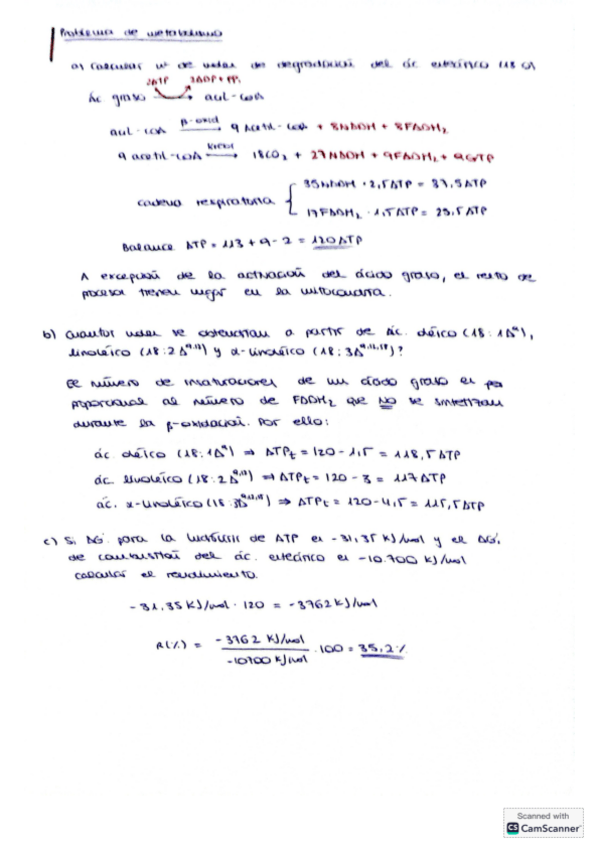 Problema de metabolismo
a) Calcular nº de moles de degradación del ác esteárico (18 C)
2ATP 2ADP + PPi
Ác graso → acil-CoA
acil-CoA β-oxid → 9 Acetil-CoA + 8NADH + 8FADH₂
9 acetil-CoA Krebs → 18CO₂ + 27NADH + 9FADH₂ + 9GTP
cadena respiratoria { 35NADH · 2,5ATP = 87,5ATP
17FADH₂ · 1,5ATP = 25,5ATP
Balance ATP = 113 + 9 - 2 = 120ATP
A excepción de la activación del ácido graso, el resto de
procesos tienen lugar en la mitocondria.
b) Cuántos moles se obtendrían a partir de ác. oléico (18:1Δ⁹),
linoléico (18:2Δ⁹·¹²) y α-linoléico (18:3Δ⁹·¹²·¹⁵)?
El número de insaturaciones de un ácido graso es
proporcional al número de FADH₂ que no se sintetizan
durante la β-oxidación. Por ello:
ác. oléico (18:1Δ⁹) ⇒ ATPt = 120 - 1,5 = 118,5ATP
ác. linoléico (18:2Δ⁹·¹²) ⇒ ATPt = 120 - 3 = 117ATP
ác. α-linoléico (18:3Δ⁹·¹²·¹⁵) ⇒ ATPt = 120 - 4,5 = 115,5ATP
c) Si ΔG para la hidrólisis de ATP es -31,35 KJ/mol y el ΔG
de combustión del ác. esteárico es -10.700 KJ/mol
calcular el rendimiento.
-31,35 KJ/mol · 120 = -3762 KJ/mol
R(%) = -3762 KJ/mol / -10700 KJ/mol · 100 = 35,2%
Scanned with
CS CamScanner